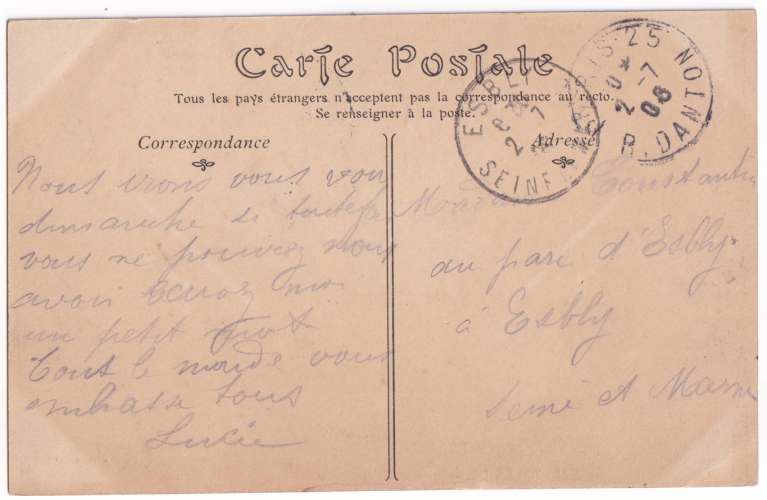 Carte Postale
Tous les pays étrangers n'acceptent pas la correspondance au recto.
Se renseigner à la poste.
Correspondance
Adresse
PARIS 25
R. DANTON
20
-7
08
ESBLY
SEINE
Nous irons vous voir
dimanche si toutefois
vous ne pouvez nous
avoir envoyez moi
un petit mot
Tout le monde vous
embrasse tous
Lucie
Constantin
au parc d'Esbly
à Esbly
Seine et Marne